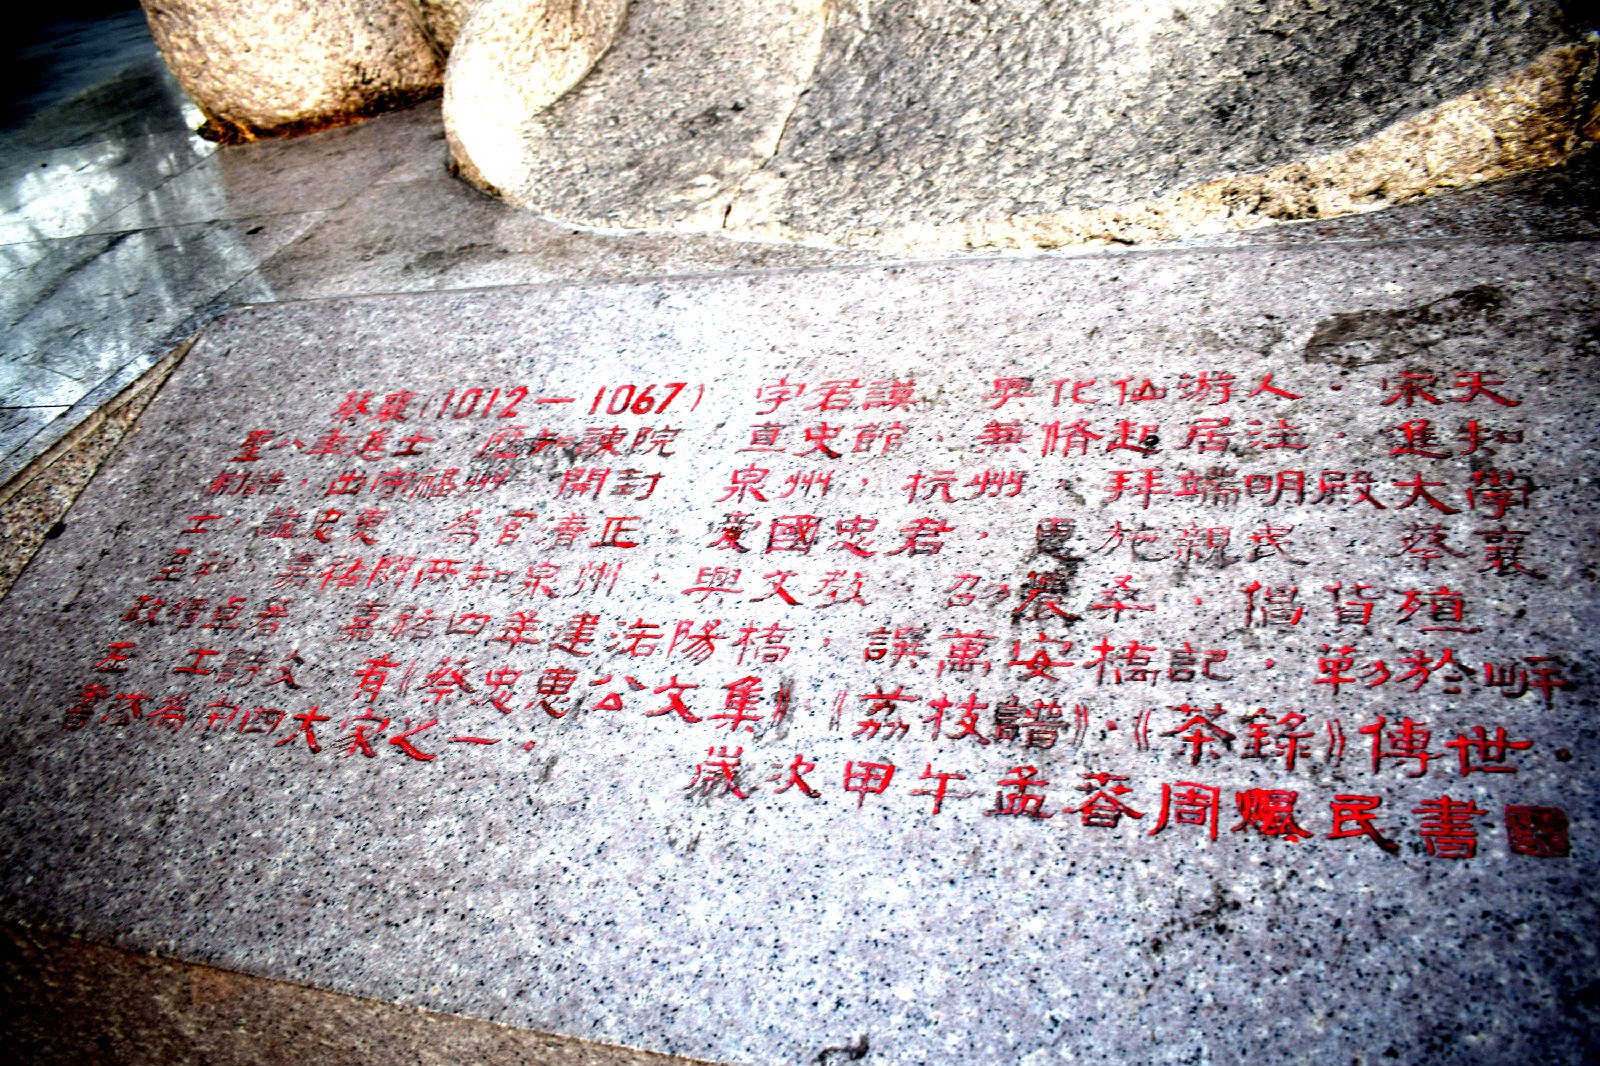 蔡襄(1012—1067) 字君謨 興化仙游人·宋天
聖八年進士 歷知諫院 直史館·兼脩起居注·進知
制誥，出守福州 開封 泉州，杭州·拜端明殿大學
士·諡忠惠 為官清正·愛國忠君·惠施親民 蔡襄
至和 嘉祐間两知泉州·興文教 勸農桑·倡貨殖
政績卓著 嘉祐四年建洛陽橋，譔萬安橋記·勒於岸
左·工詩文 有《蔡忠惠公文集》·《荔枝譜》·《茶錄》傳世·
書法為宋四大家之一。
歲次甲午孟春周焜民書